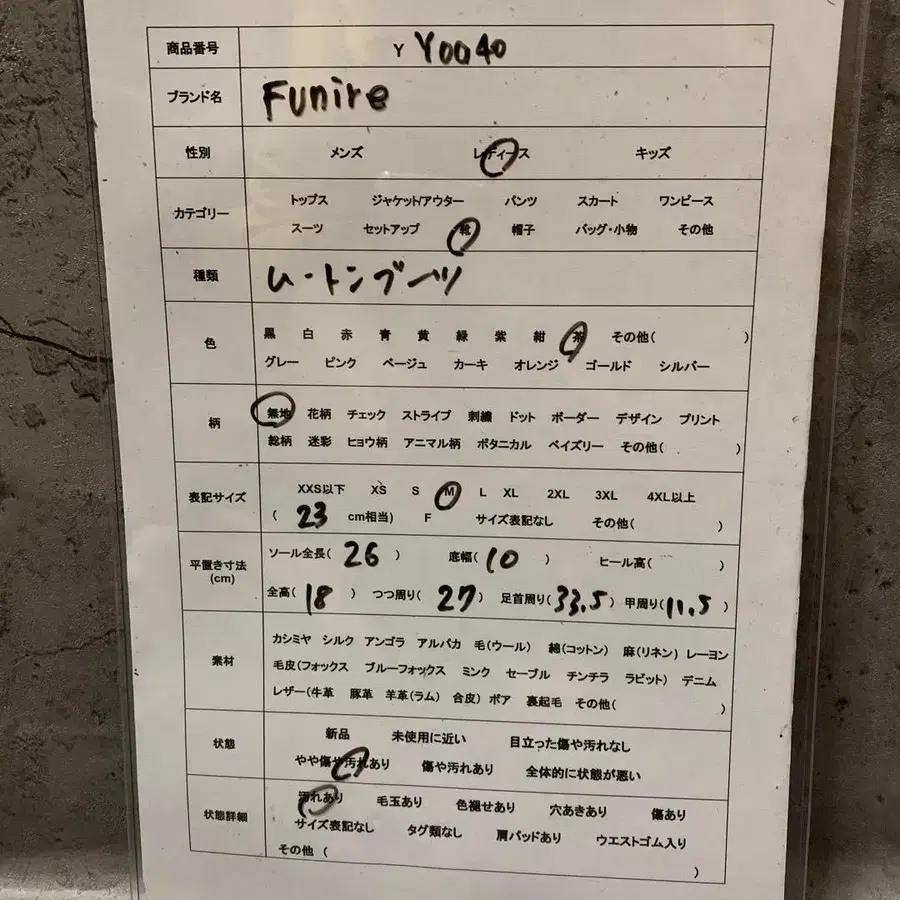 商品番号 Y Y0040
ブランド名 Funire
性別 メンズ レディース キッズ
カテゴリー トップス ジャケット/アウター パンツ スカート ワンピース
スーツ セットアップ 靴 帽子 バッグ・小物 その他
種類 ムートンブーツ
色 黒 白 赤 青 黄 緑 紫 紺 茶 その他( )
グレー ピンク ベージュ カーキ オレンジ ゴールド シルバー
柄 無地 花柄 チェック ストライプ 刺繍 ドット ボーダー デザイン プリント
総柄 迷彩 ヒョウ柄 アニマル柄 ボタニカル ペイズリー その他( )
表記サイズ XXS以下 XS S M L XL 2XL 3XL 4XL以上
( 23 cm相当) F サイズ表記なし その他( )
平置き寸法(cm) ソール全長( 26 ) 底幅( 10 ) ヒール高( )
全高( 18 ) つつ周り( 27 ) 足首周り( 33.5 ) 甲周り( 11.5 )
素材 カシミヤ シルク アンゴラ アルパカ 毛(ウール) 綿(コットン) 麻(リネン) レーヨン
毛皮(フォックス ブルーフォックス ミンク セーブル チンチラ ラビット) デニム
レザー(牛革 豚革 羊革(ラム) 合皮) ボア 裏起毛 その他( )
状態 新品 未使用に近い 目立った傷や汚れなし
やや傷や汚れあり 傷や汚れあり 全体的に状態が悪い
状態詳細 汚れあり 毛玉あり 色褪せあり 穴あきあり 傷あり
サイズ表記なし タグ類なし 肩パッドあり ウエストゴム入り
その他 ( )